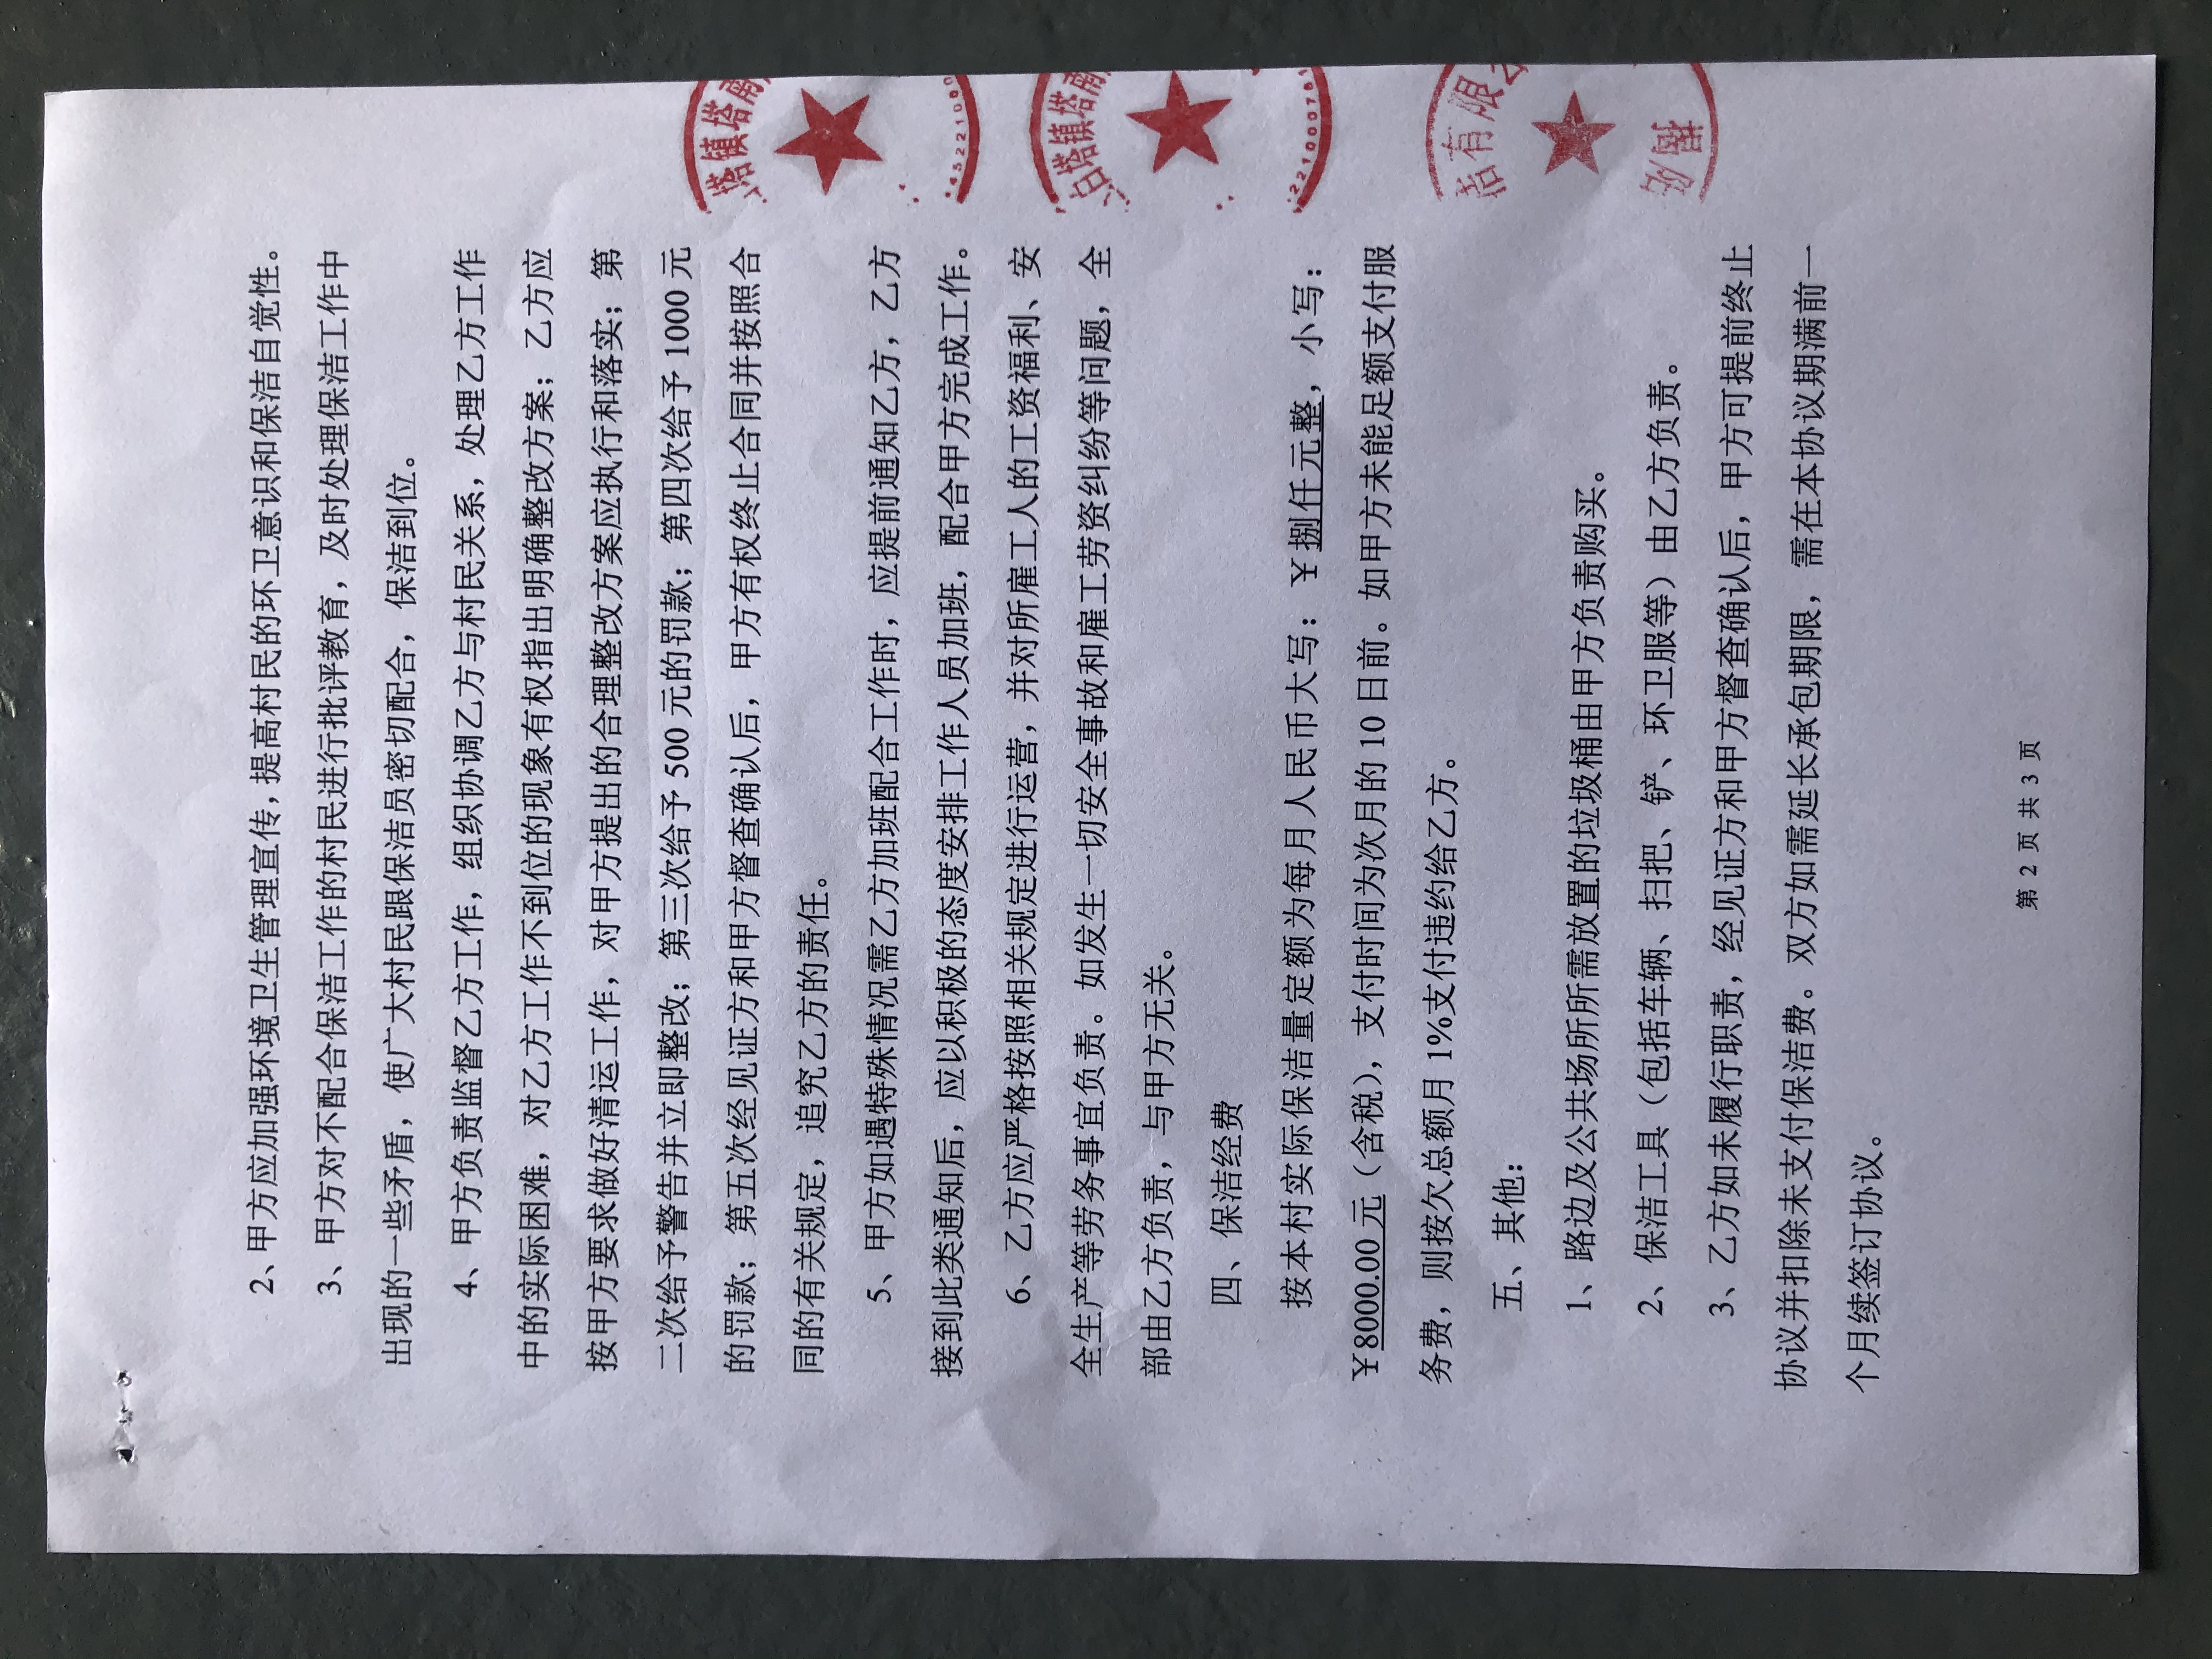 2、甲方应加强环境卫生管理宣传,提高村民的环卫意识和保洁自觉性。
3、甲方对不配合保洁工作的村民进行批评教育，及时处理保洁工作中
出现的一些矛盾，使广大村民跟保洁员密切配合，保洁到位。
4、甲方负责监督乙方工作，组织协调乙方与村民关系，处理乙方工作
中的实际困难，对乙方工作不到位的现象有权指出明确整改方案；乙方应
按甲方要求做好清运工作，对甲方提出的合理整改方案应执行和落实；第
二次给予警告并立即整改；第三次给予 500 元的罚款；第四次给予 1000 元
的罚款；第五次经见证方和甲方督查确认后，甲方有权终止合同并按照合
同的有关规定，追究乙方的责任。
5、甲方如遇特殊情况需乙方加班配合工作时，应提前通知乙方，乙方
接到此类通知后，应以积极的态度安排工作人员加班，配合甲方完成工作。
6、乙方应严格按照相关规定进行运营，并对所雇工人的工资福利、安
全生产等劳务事宜负责。如发生一切安全事故和雇工劳资纠纷等问题，全
部由乙方负责，与甲方无关。
四、保洁经费
按本村实际保洁量定额为每月人民币大写：￥捌仟元整，小写：
￥8000.00 元（含税），支付时间为次月的 10 日前。如甲方未能足额支付服
务费，则按欠总额月 1%支付违约给乙方。
五、其他:
1、路边及公共场所所需放置的垃圾桶由甲方负责购买。
2、保洁工具（包括车辆、扫把、铲、环卫服等）由乙方负责。
3、乙方如未履行职责，经见证方和甲方督查确认后，甲方可提前终止
协议并扣除未支付保洁费。双方如需延长承包期限，需在本协议期满前一
个月续签订协议。
第 2 页 共 3 页
塔镇塔
4522100
白塔镇塔
22100076
洁有限
揭